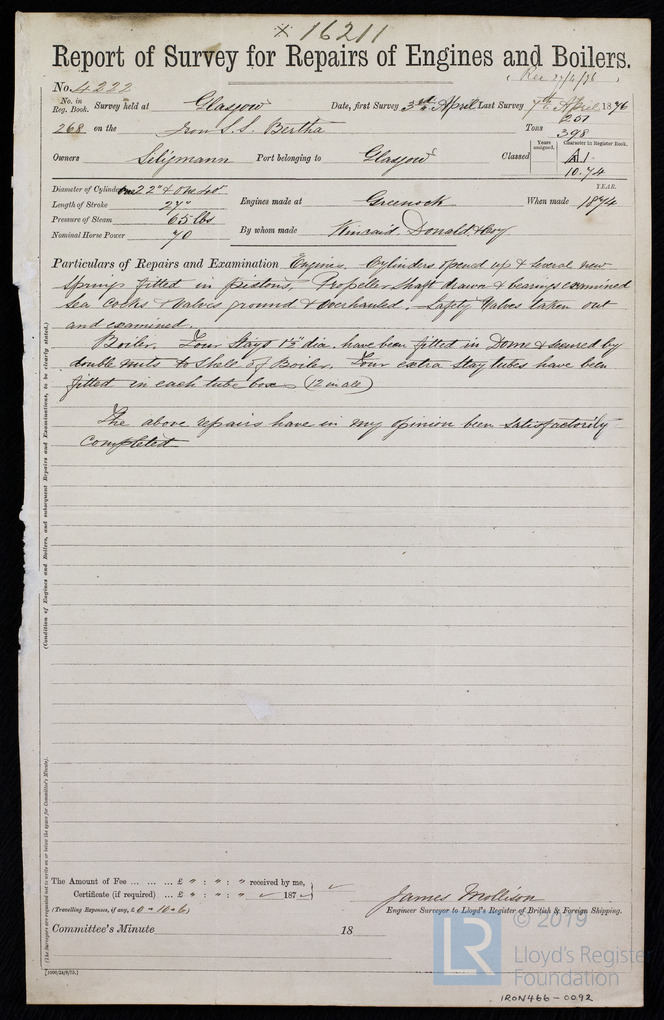 x 16211
Report of Survey for Repairs of Engines and Boilers.
(Rec 27/4/76)
No. 4222
No. in Reg. Book. Survey held at Glasgow Date, first Survey 3rd April Last Survey 7th April 1876
268 on the Iron S.S. Bertha Tons 251
398
Owners Seligmann Port belonging to Glasgow Classed Years assigned. Character in Register Book. A1
10.74
Diameter of Cylinders One 22" & One 40" YEAR.
Length of Stroke 27" Engines made at Greenock When made 1874
Pressure of Steam 65 lbs
Nominal Horse Power 70 By whom made Kincaid, Donald & Coy
Particulars of Repairs and Examination Engines. Cylinders opened up & several new
springs fitted in pistons, Propeller shaft drawn & bearings examined
Sea Cocks & Valves ground & overhauled. Safety Valves taken out
and examined.
Boiler. Four Stays 1½" dia. have been fitted in Dome & secured by
double nuts to Shell of Boiler. Four extra Stay tubes have been
fitted in each tube box (12 in all)
The above repairs have in my opinion been satisfactorily
Completed
(Condition of Engines and Boilers, and subsequent Repairs and Examinations, to be clearly stated.)
(The Surveyors are requested not to write on or below the space for Committee's Minute).
The Amount of Fee ... ... ... £ " : " : " received by me,
Certificate (if required) ... £ " : " : " 187
(Travelling Expenses, if any, £ 0 " 10 " 6)
James Mollison
Engineer Surveyor to Lloyd's Register of British & Foreign Shipping.
Committee's Minute 18
[1000/24/9/75.]
LR
© 2019
Lloyd's Register
Foundation
IRON466-0092